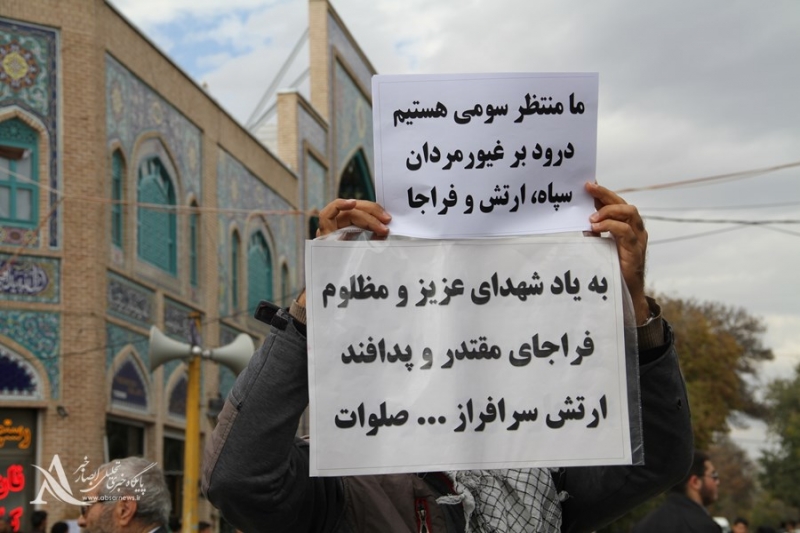 ما منتظر سومی هستیم
درود بر غیورمردان
سپاه، ارتش و فراجا
به یاد شهدای عزیز و مظلوم
فراجای مقتدر و پدافند
ارتش سرافراز ... صلوات
پایگاه خبری تحلیلی ابصار نیوز
www.absarnews.ir